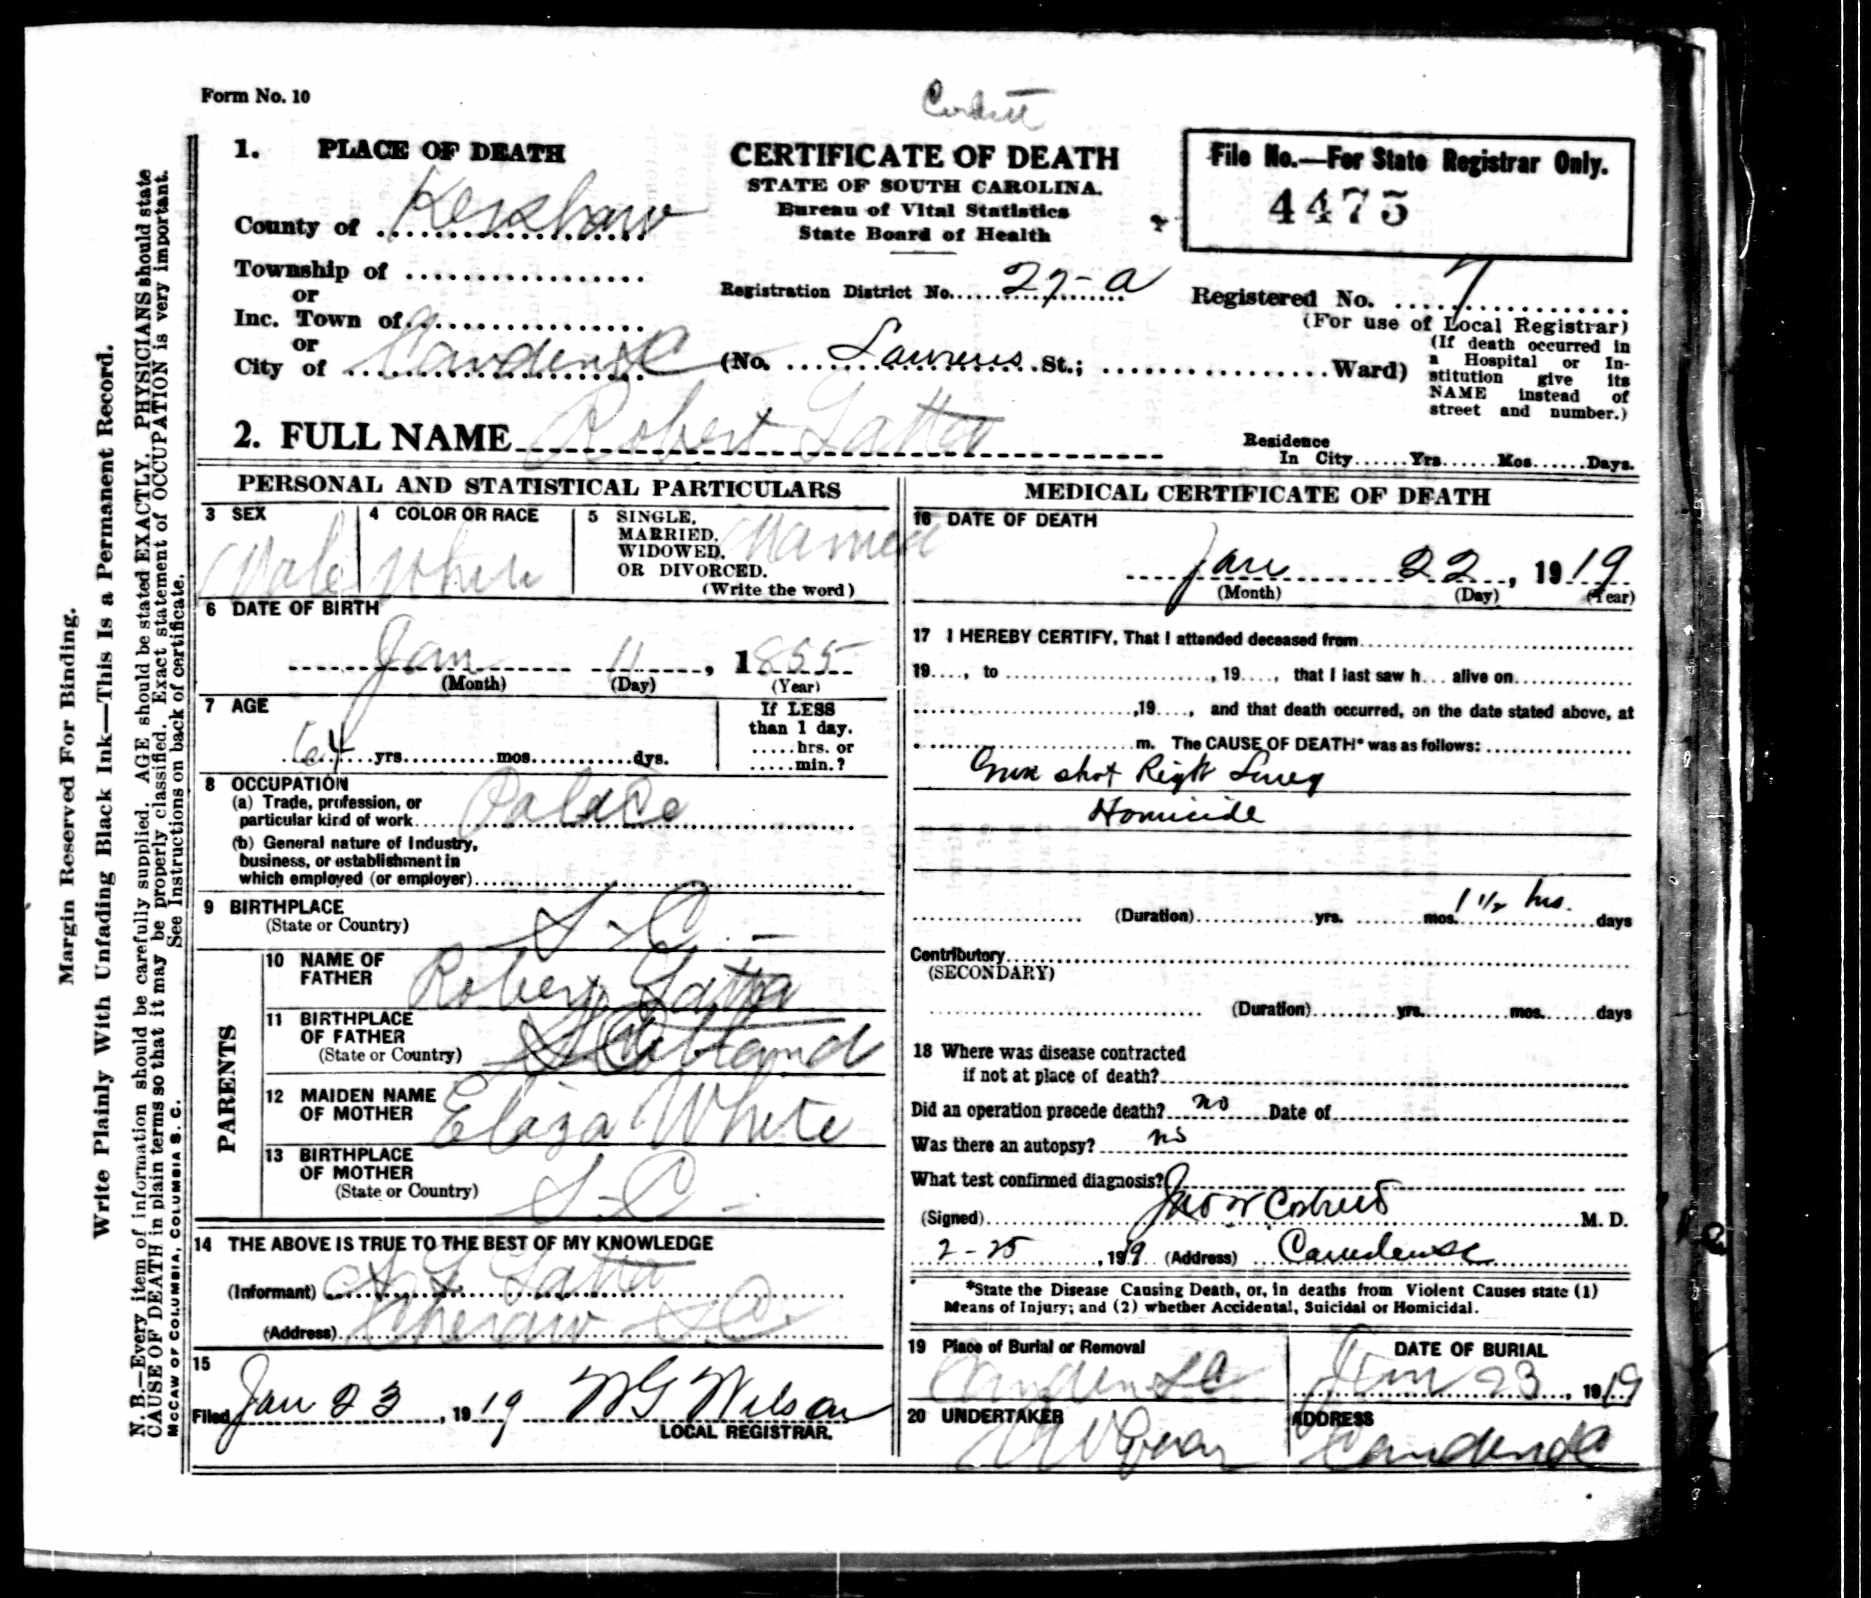 Form No. 10
1. PLACE OF DEATH
County of Kershaw
Township of
or
Inc. Town of
or
City of Camden SC
CERTIFICATE OF DEATH
STATE OF SOUTH CAROLINA.
Bureau of Vital Statistics
State Board of Health
Registration District No. 27-A
File No.—For State Registrar Only.
4475
Registered No. 7
(For use of Local Registrar)
(No. Laurens St.; Ward)
(If death occurred in
a Hospital or In-
stitution give its
NAME instead of
street and number.)
2. FULL NAME Robert Latta
Residence
In City......Yrs......Mos......Days.
PERSONAL AND STATISTICAL PARTICULARS
3 SEX
Male
4 COLOR OR RACE
White
5 SINGLE,
MARRIED,
WIDOWED,
OR DIVORCED.
(Write the word)
Married
6 DATE OF BIRTH
Jan 11, 1855
(Month) (Day) (Year)
7 AGE
64 yrs. mos. dys.
If LESS
than 1 day,
.....hrs. or
.....min.?
8 OCCUPATION
(a) Trade, profession, or
particular kind of work Police
(b) General nature of Industry,
business, or establishment in
which employed (or employer)
9 BIRTHPLACE
(State or Country)
S. C. —
PARENTS
10 NAME OF
FATHER
Robert Latta
11 BIRTHPLACE
OF FATHER
(State or Country)
Scotland
12 MAIDEN NAME
OF MOTHER
Eliza White
13 BIRTHPLACE
OF MOTHER
(State or Country)
S-C-
14 THE ABOVE IS TRUE TO THE BEST OF MY KNOWLEDGE
(Informant) Latta
(Address) Cheraw SC.
15
Filed Jan 23, 1919 WG Wilson
LOCAL REGISTRAR.
MEDICAL CERTIFICATE OF DEATH
16 DATE OF DEATH
Jan 22, 1919
(Month) (Day) (Year)
17 I HEREBY CERTIFY, That I attended deceased from
19...., to ...., 19...., that I last saw h... alive on
....,19...., and that death occurred, on the date stated above, at
....m. The CAUSE OF DEATH* was as follows:
Gun shot Right Lung
Homicide
(Duration) yrs. mos. 1 1/2 hrs. days
Contributory
(SECONDARY)
(Duration) yrs. mos. days
18 Where was disease contracted
if not at place of death?
Did an operation precede death? no Date of
Was there an autopsy? no
What test confirmed diagnosis?
(Signed) Jno W Corbett M. D.
2-25, 1919 (Address) Camden SC
*State the Disease Causing Death, or, in deaths from Violent Causes state (1)
Means of Injury; and (2) whether Accidental, Suicidal or Homicidal.
19 Place of Burial or Removal
Camden SC
DATE OF BURIAL
Jan 23, 1919
20 UNDERTAKER
ADDRESS
Camden SC
Margin Reserved For Binding.
Write Plainly With Unfading Black Ink—This Is a Permanent Record.
N. B.—Every item of information should be carefully supplied. AGE should be stated EXACTLY. PHYSICIANS should state
CAUSE OF DEATH in plain terms so that it may be properly classified. Exact statement of OCCUPATION is very important.
See Instructions on back of certificate.
McCAW OF COLUMBIA, COLUMBIA S. C.